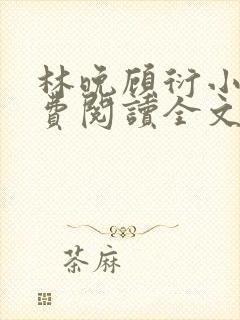 林晚顾衍小
費閱讀全文
茶麻